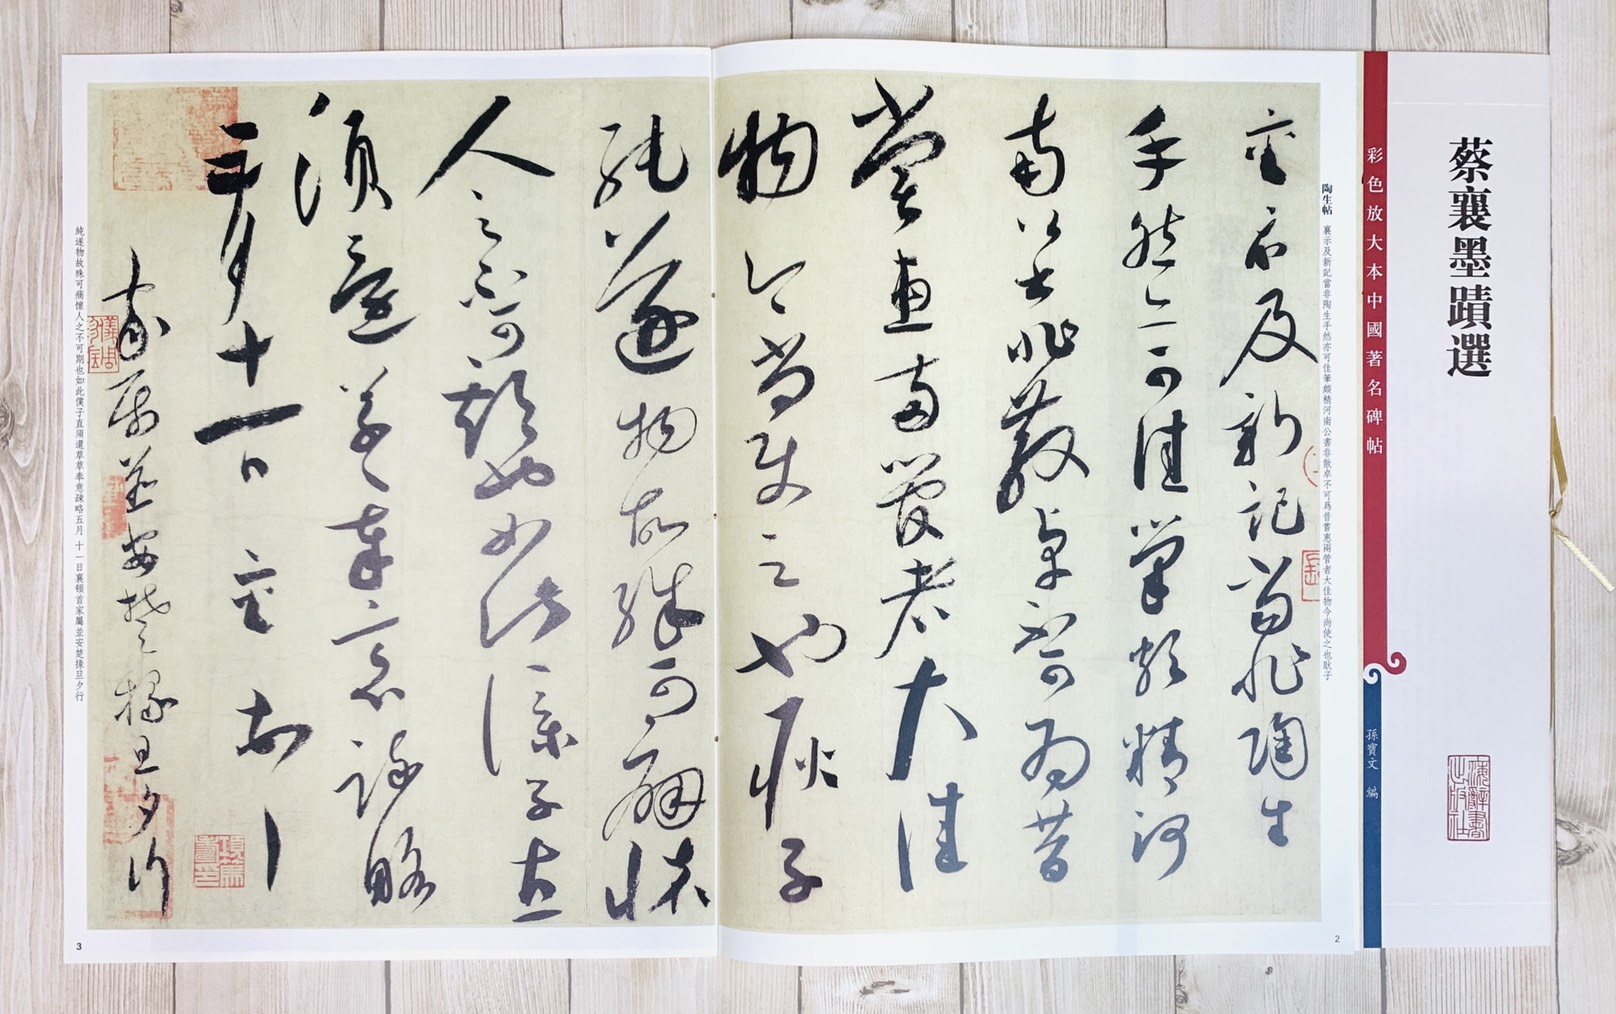 蔡襄墨蹟選
彩色放大本中國著名碑帖
孫寶文 編
陶生帖 襄示及新記當非陶生手然亦可佳筆頗精河南公書非散卓不可爲昔嘗惠兩管者大佳物今尚使之也耿子
襄示及新記當非陶生
手然亦可佳筆頗精河
南公書非散卓不可爲昔
嘗惠兩管者大佳
物今尚使之也耿子
2
純遂物故殊可痛懷
人之不可期也如此僕子直
須還草草奉意疎略
五月十一日襄頓首
家屬並安楚掾旦夕行
純遂物故殊可痛懷人之不可期也如此僕子直須還草草奉意疎略五月 十一日襄頓首家屬並安楚掾旦夕行
3